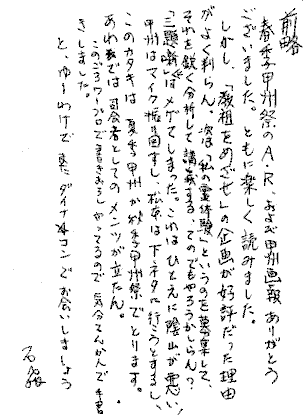 前略
春季甲州祭のA・R、および甲州画報ありがとう
ございました。ともに楽しく読みました。
しかし、「教祖をめざせ」の企画が好評だった理由
がよく判らん。次は「私の霊体験」というのを募集して、
それを鋭く分析して講義する、てのでもやろうかしらん?
「三題噺」はメゲてしまった。これはひとえに陰山が悪い!
甲州はマイク振り回すし、松本は下ネタに行こうとするし、
このカタキは夏季甲州か秋季甲州祭でとります。
あれでは司会者としてのメンツが立たん。
このごろワープロで書きおろしやってるので、気分てんかんで手書
きしました。
と、ゆーわけで またダイナ コンでお会いしましょう